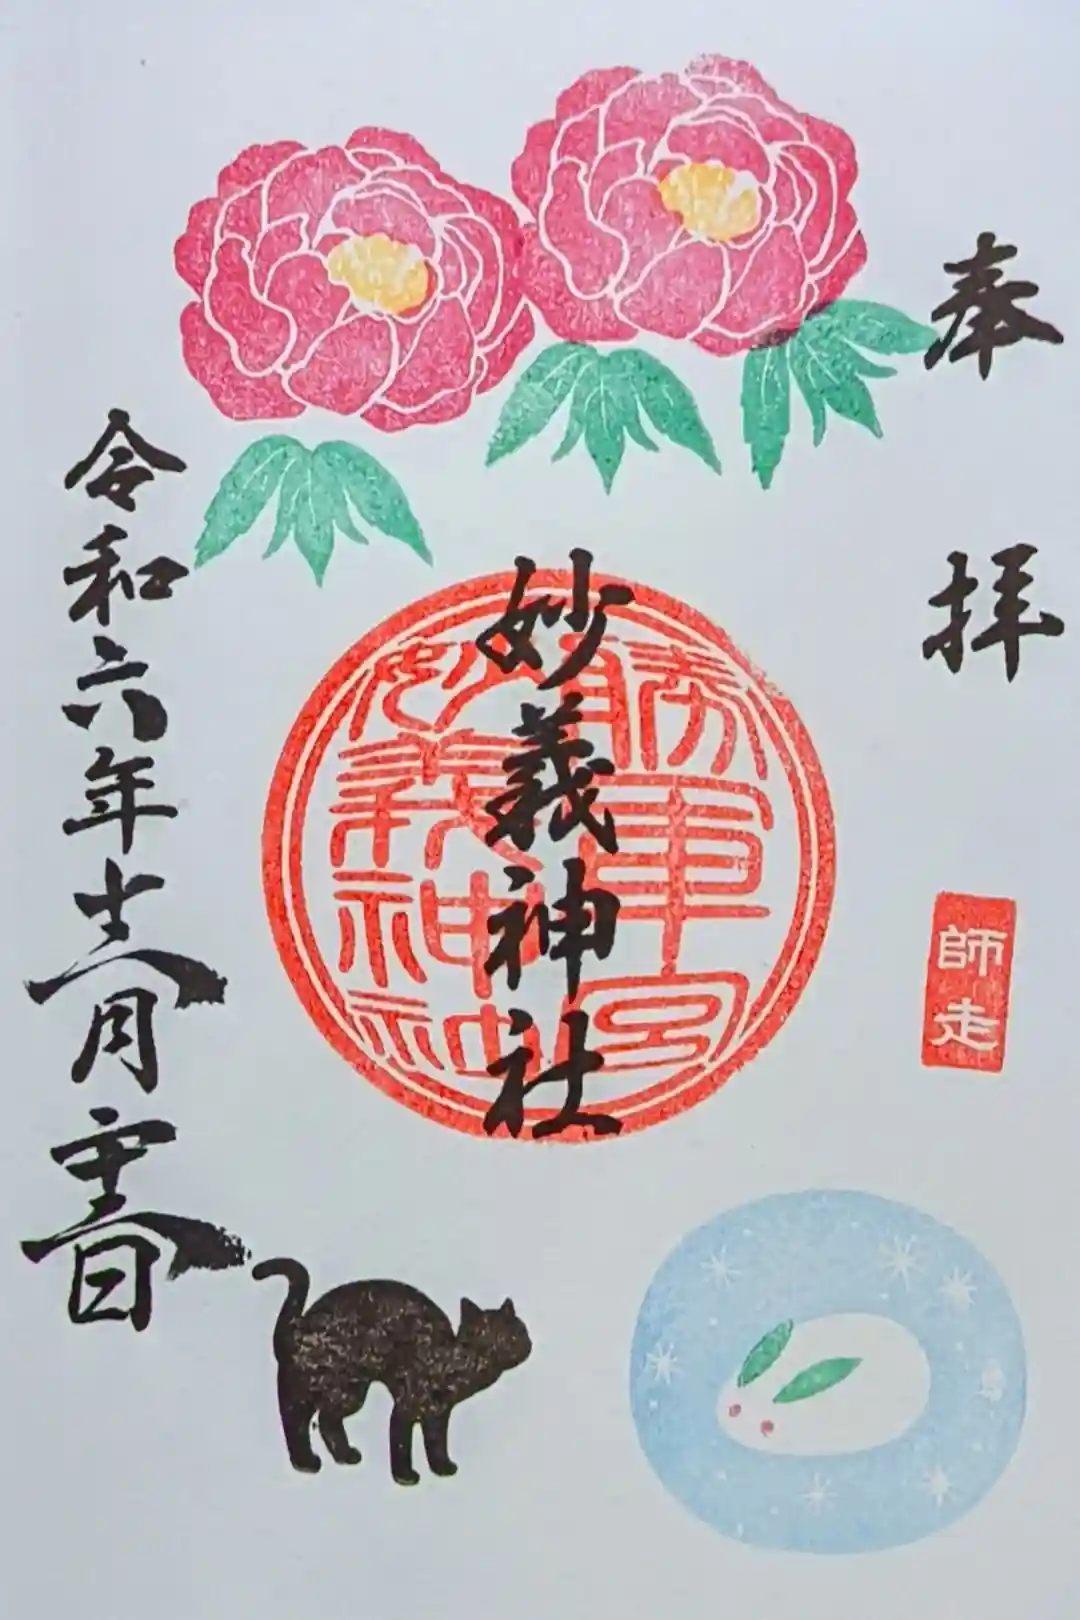 奉拝
師走
妙義神社
勝軍宮
妙義神社
令和六年十二月 日